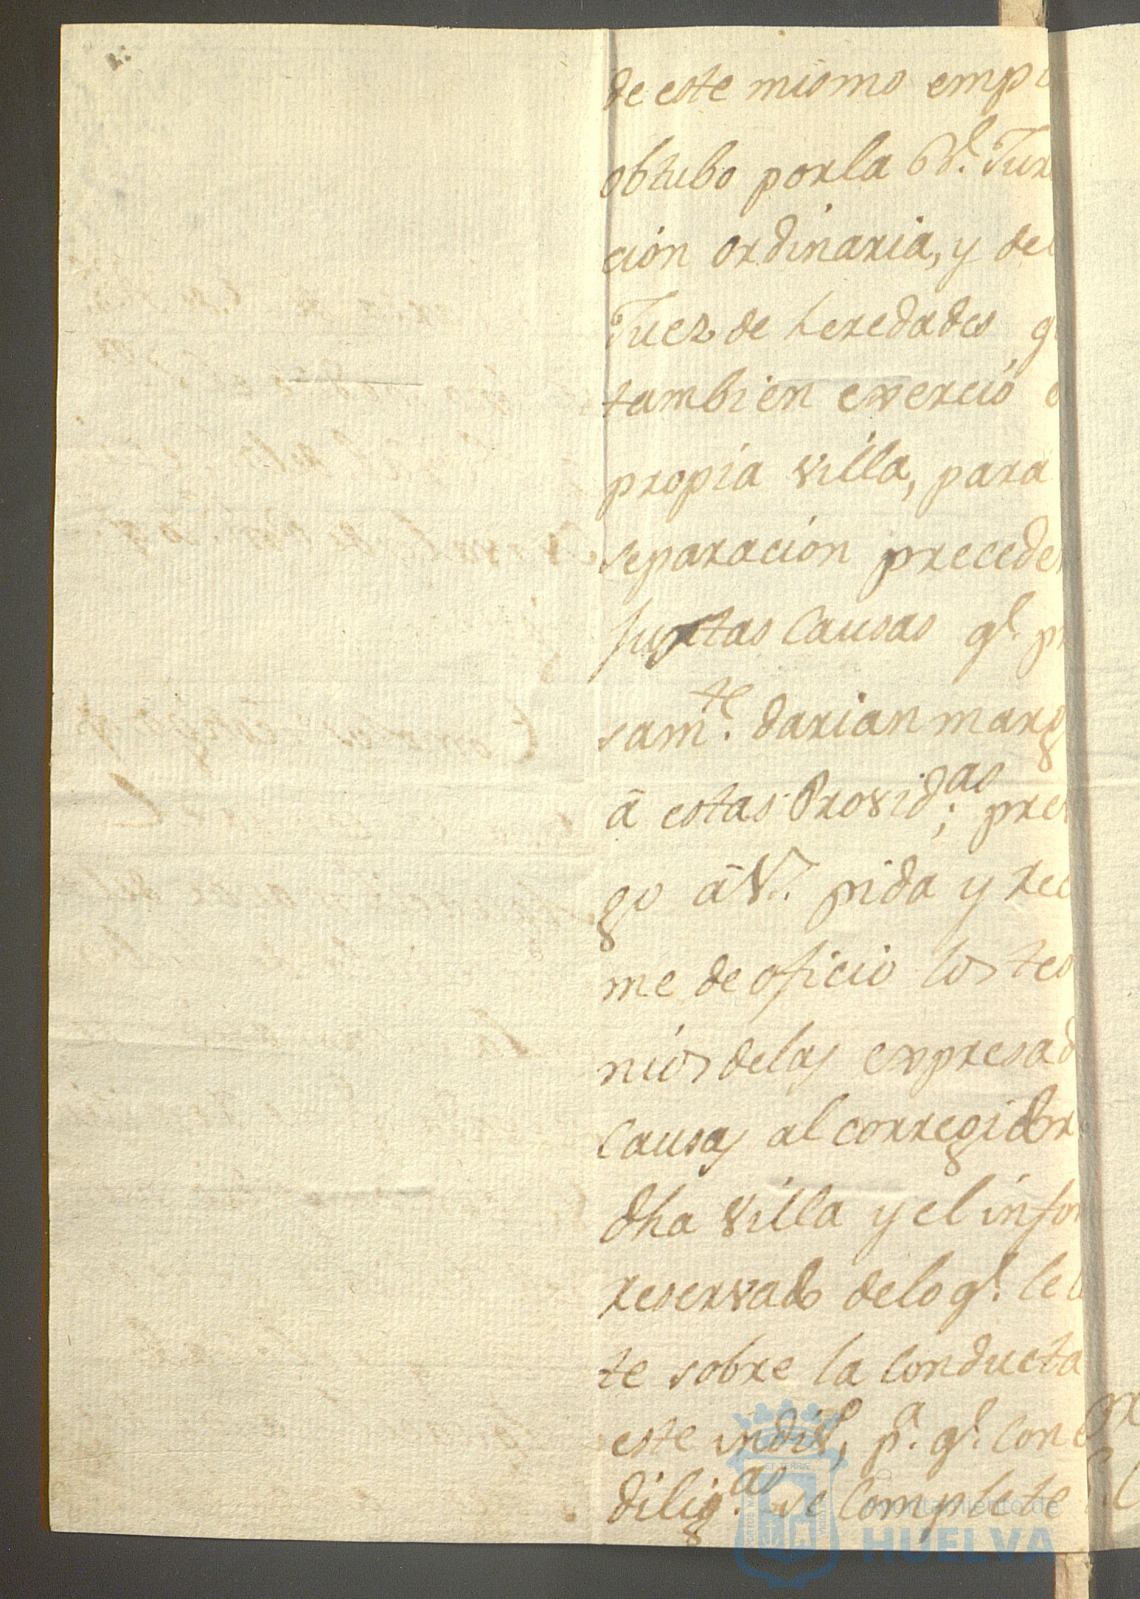 de este mismo emp
obtubo por la Rl. Jur
ción ordinaria, y del
Juez de heredades q
tambien exerció e
propia villa, para
separación precede
justas causas ql. p
samte. darian marg
â estas Provid.as; pre
go â V. pida y rec
me de oficio los tes
nios delas expresad
causas al corregidor
dha villa y el infor
reservado delo ql. le
te sobre la conducta
este indivo, pa. ql. con e
dilig.as se complete
Ayuntamiento de
HUELVA